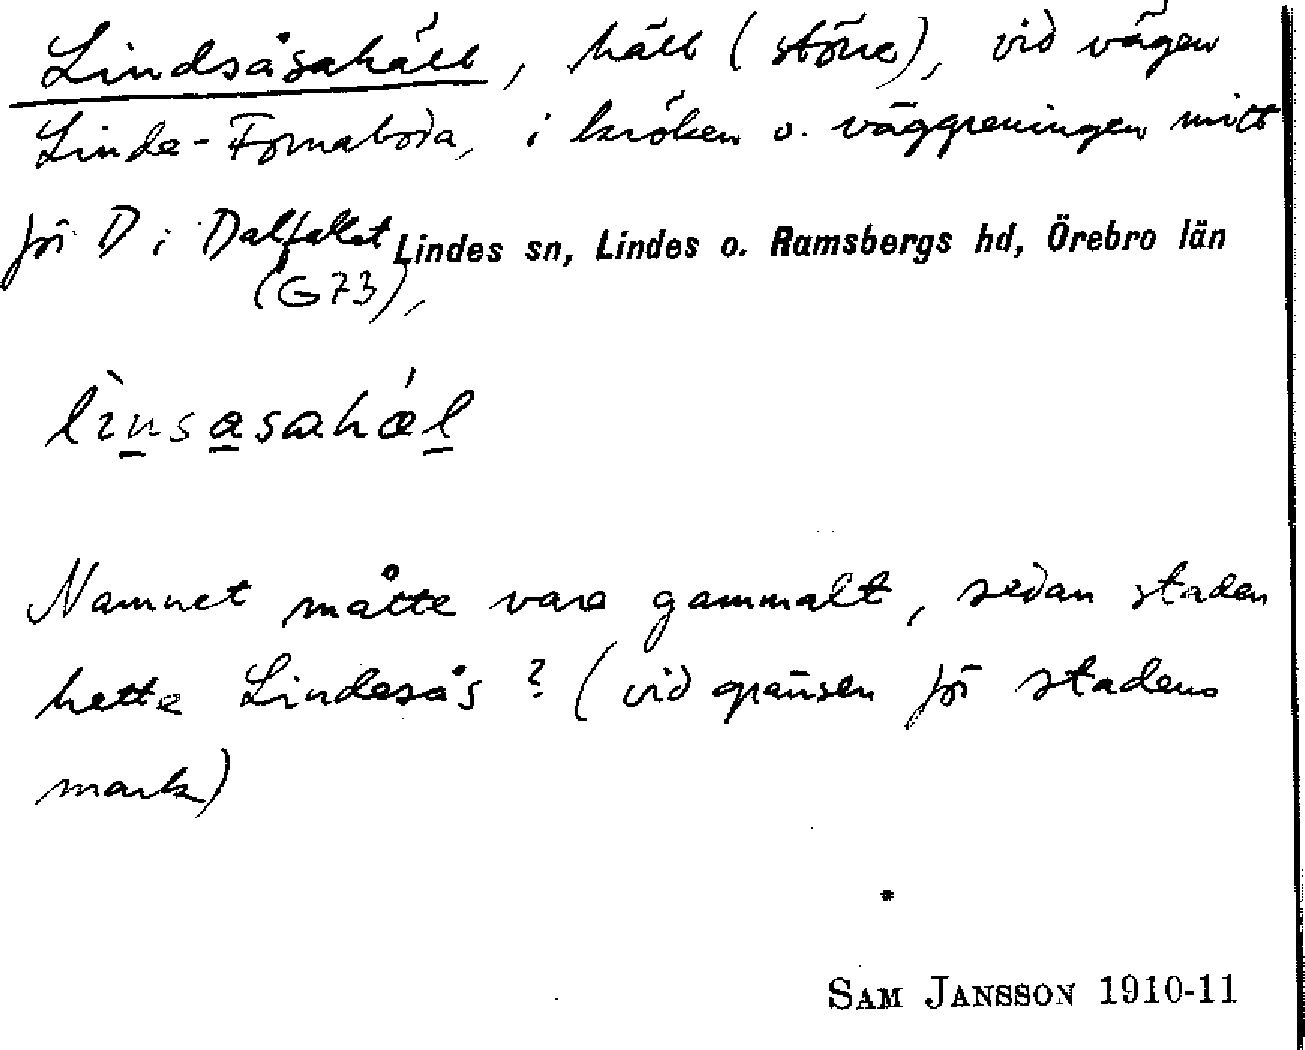 Lindsåsahäll, häll (större), vid vägen
Linde-Fornaboda, i kröken o. väggreningen mitt
för D i Dalfallet Lindes sn, Lindes o. Ramsbergs hd, Örebro län
(G73),
lìnsasahǽl
Namnet måtte vara gammalt, sedan staden
hette Lindesås? (vid gränsen för stadens
mark)
SAM JANSSON 1910-11